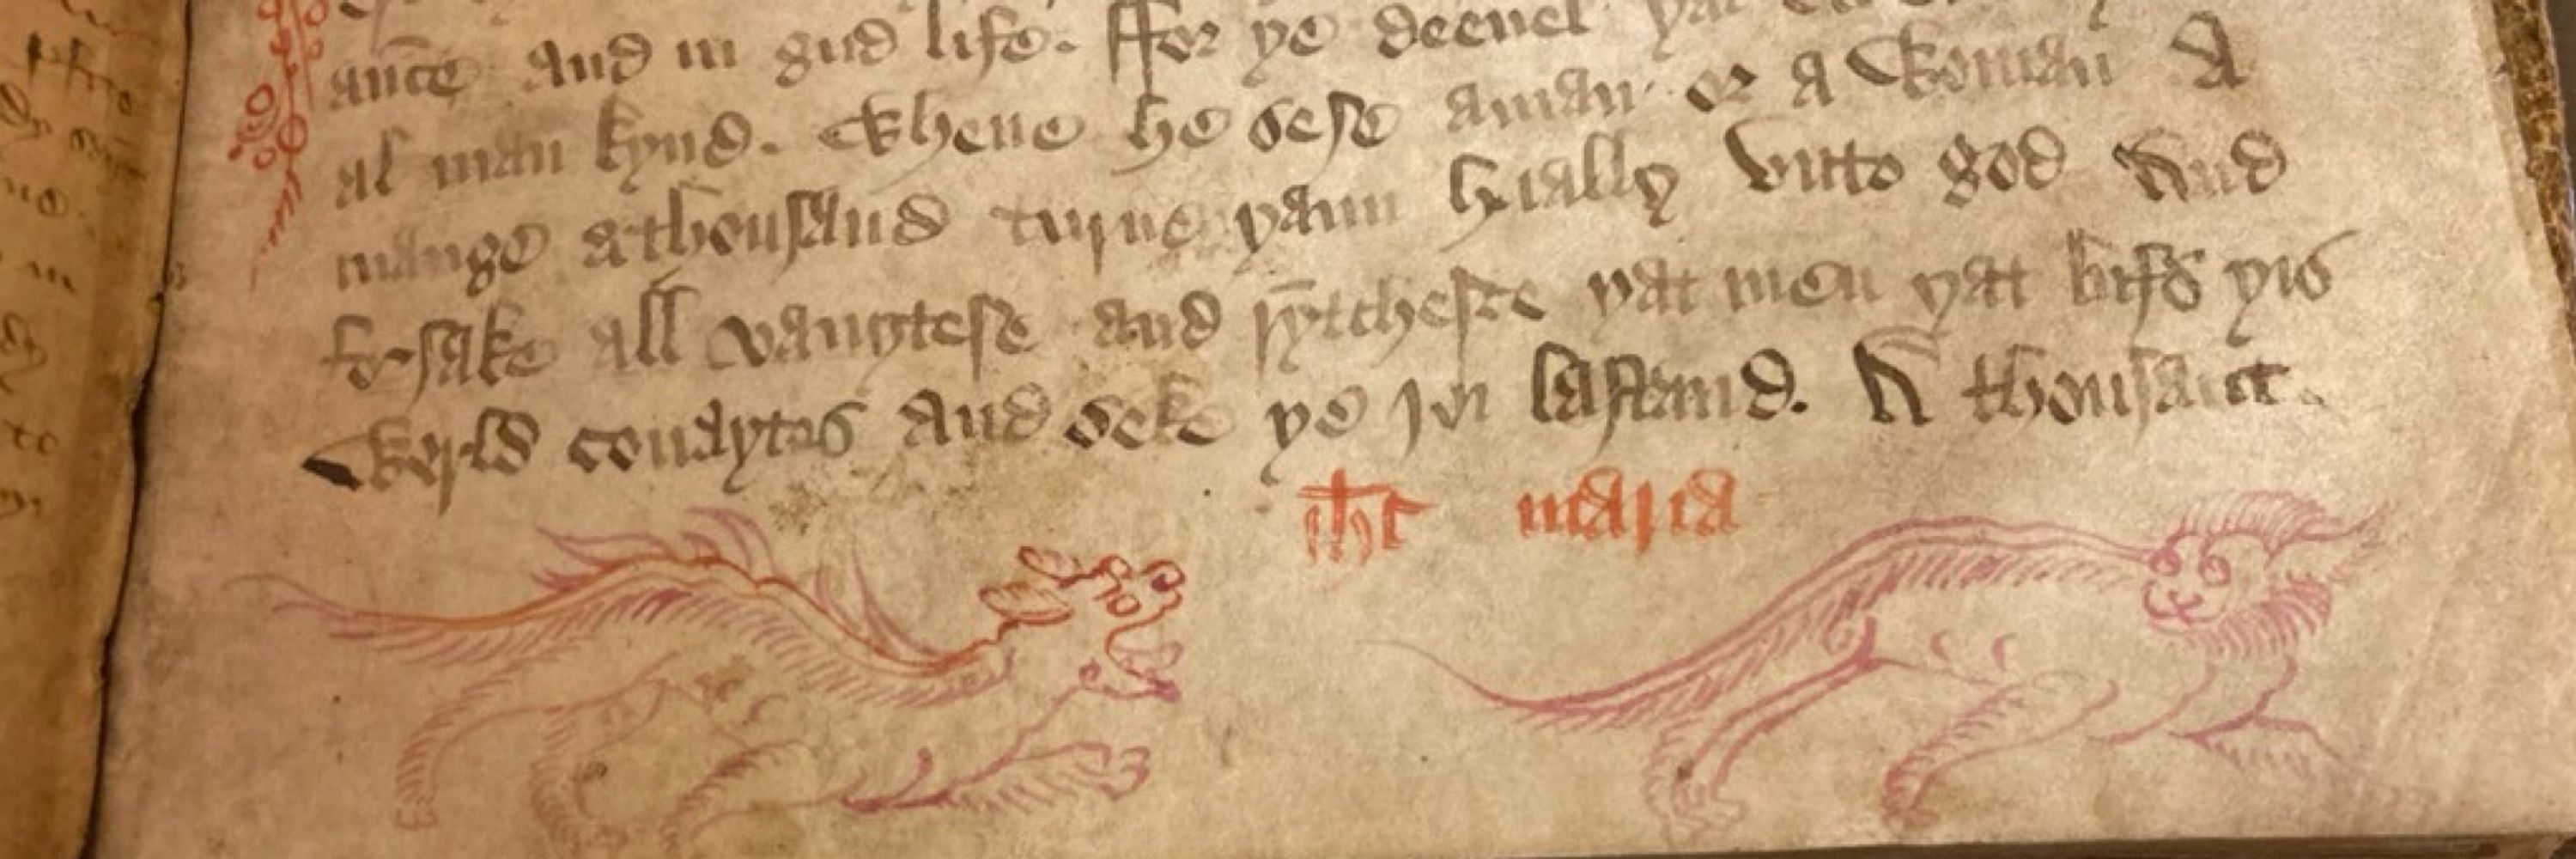 ance and in gud life. ffor ye deeuel yat
al man kynd. Whene he sese aman or a Woman A
mange a thousand turne yam hially vnto god And
forsake all vanytese and rytcheste yat men yat lufs yis
Werld couaytes And seke ye joi lastand. A thousant.
ihc maria